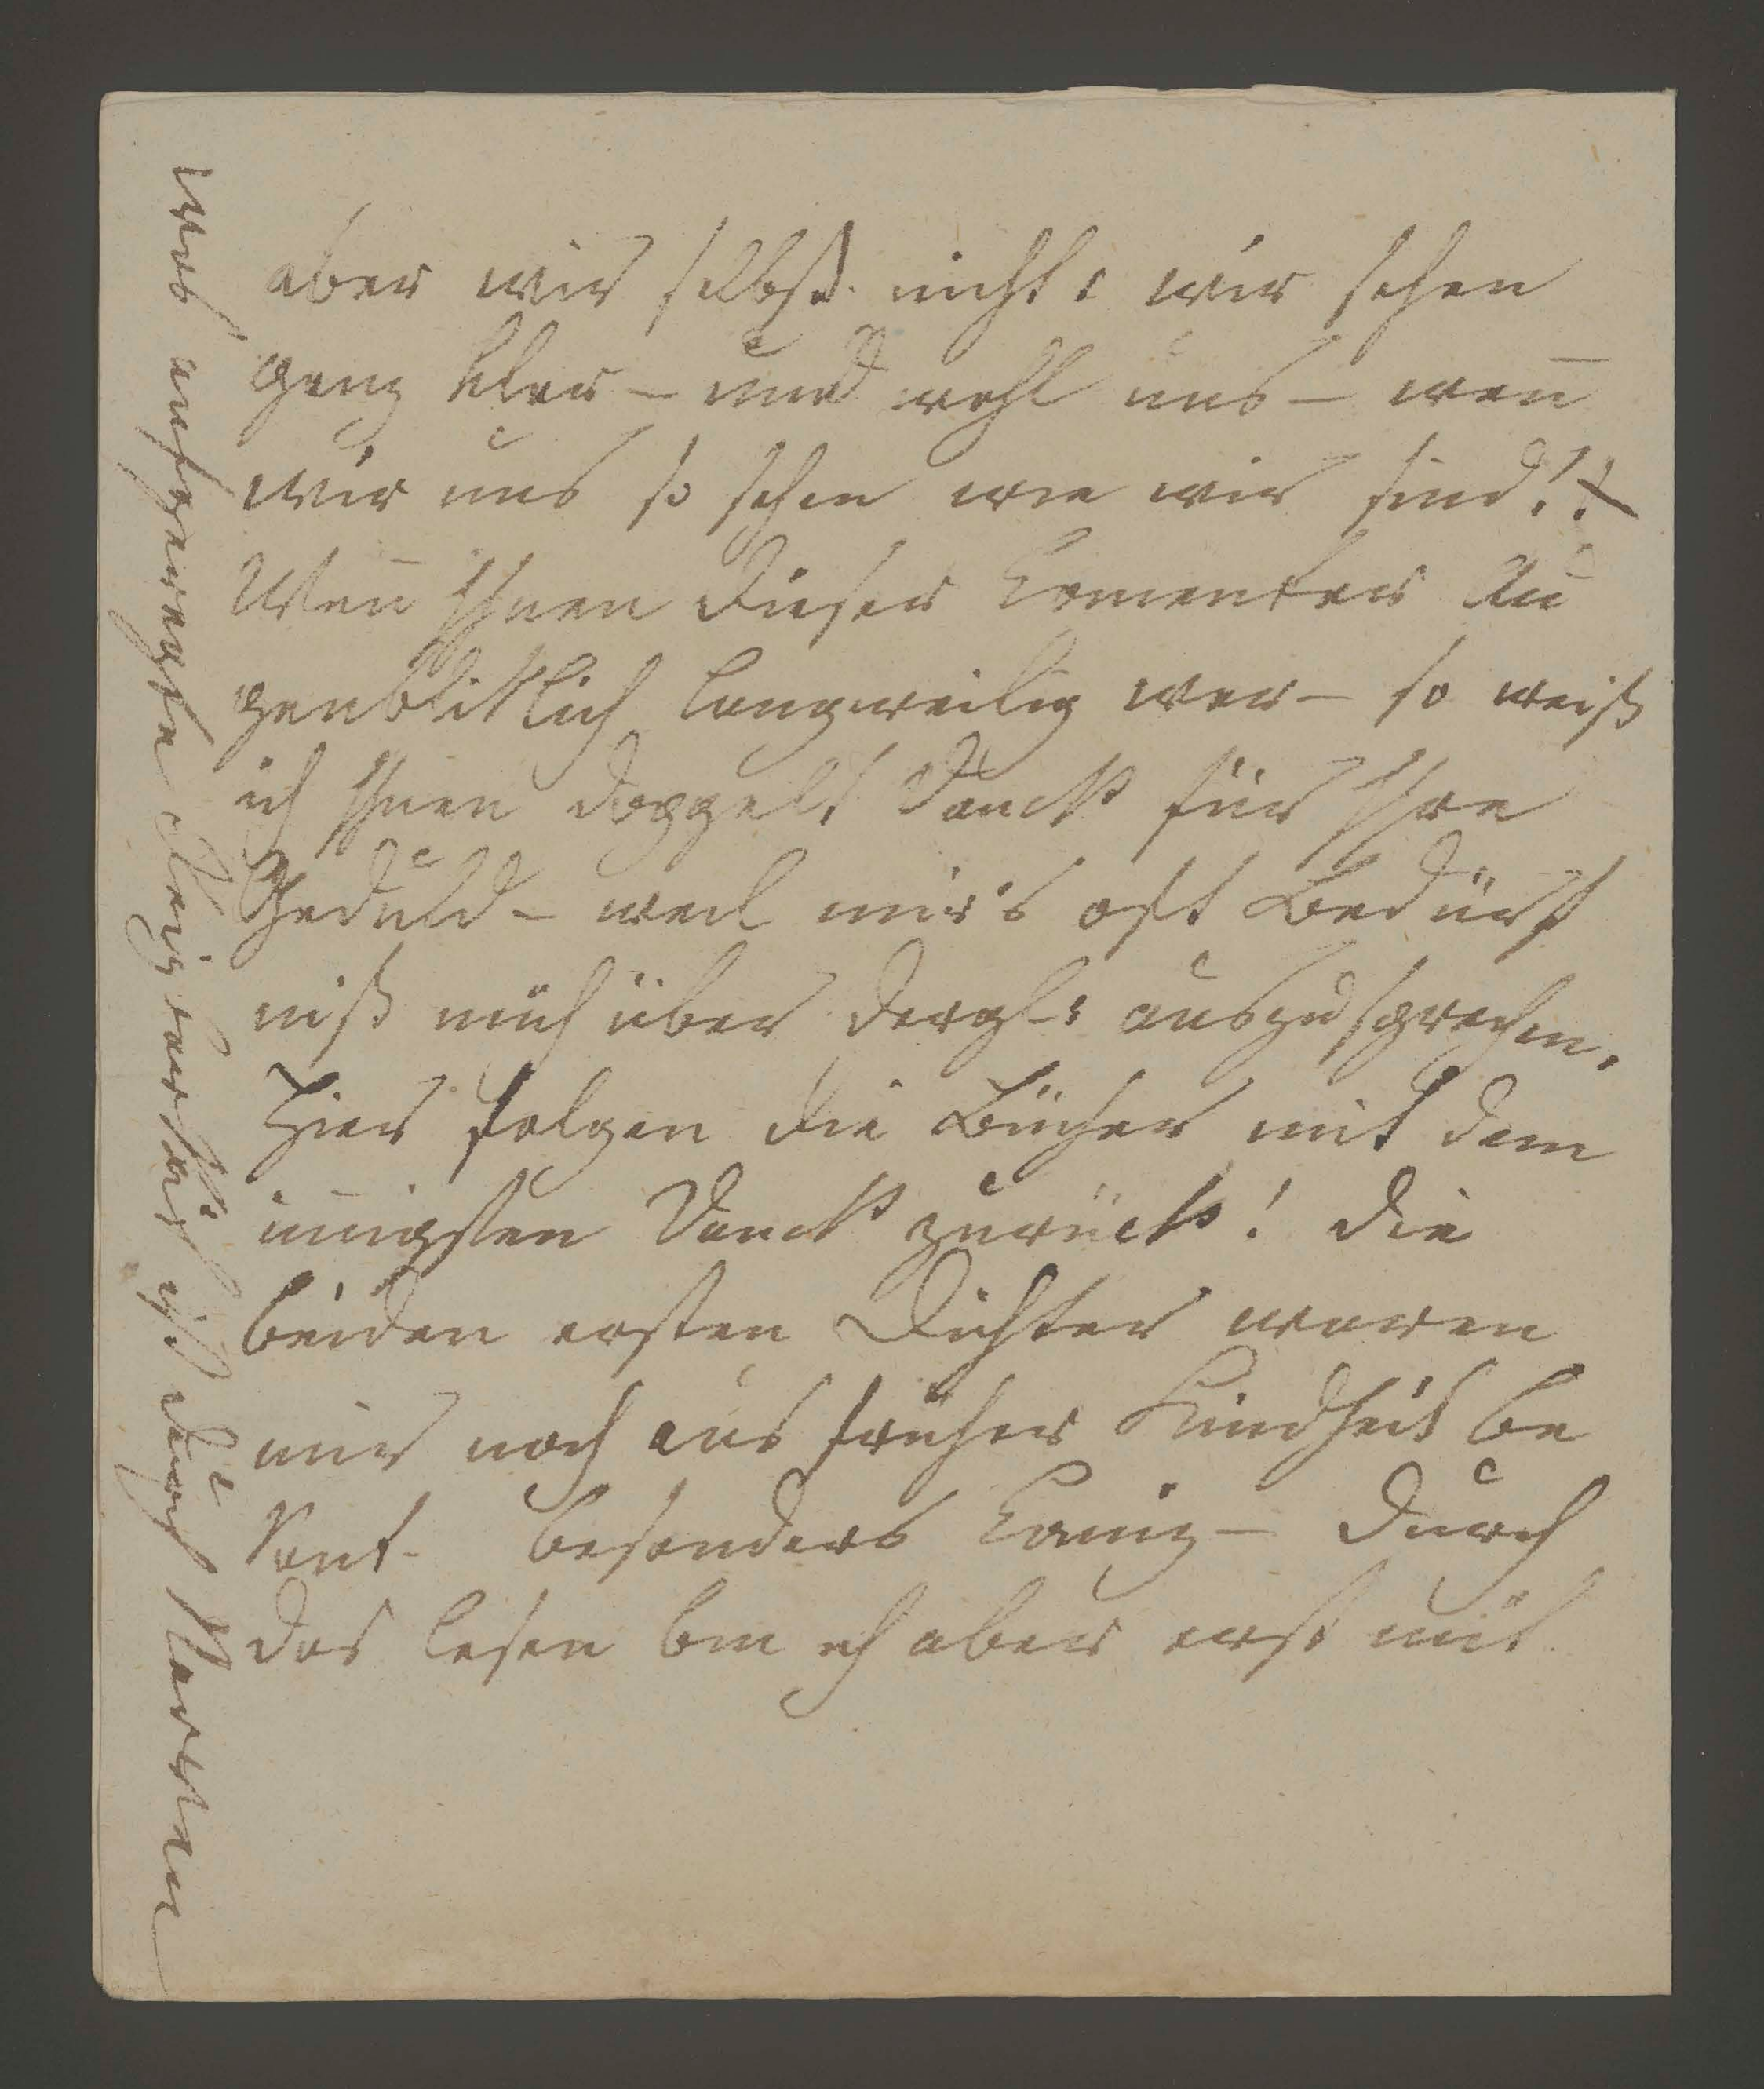 aber wir selbst nicht: wir sehen
ganz klar – und wohl uns – weñ
wir uns so sehen wie wir sind! –
Weñ Ihnen dieser Comentar Au
genbliklich langweilig war – so weiß
ich Ihnen doppelt Danck für Ihre
Geduld – weil mir's oft Bedürf
niß mich über dergl: auszusprechen.
Hier folgen die Bücher mit dem
iñigsten Danck zurück! Die
beiden ersten Dichter waren
mir noch aus früher Kindheit be
kant – besonders Caniz – durch
das lesen bin ich aber erst mit
was aufgeweckte ist durch